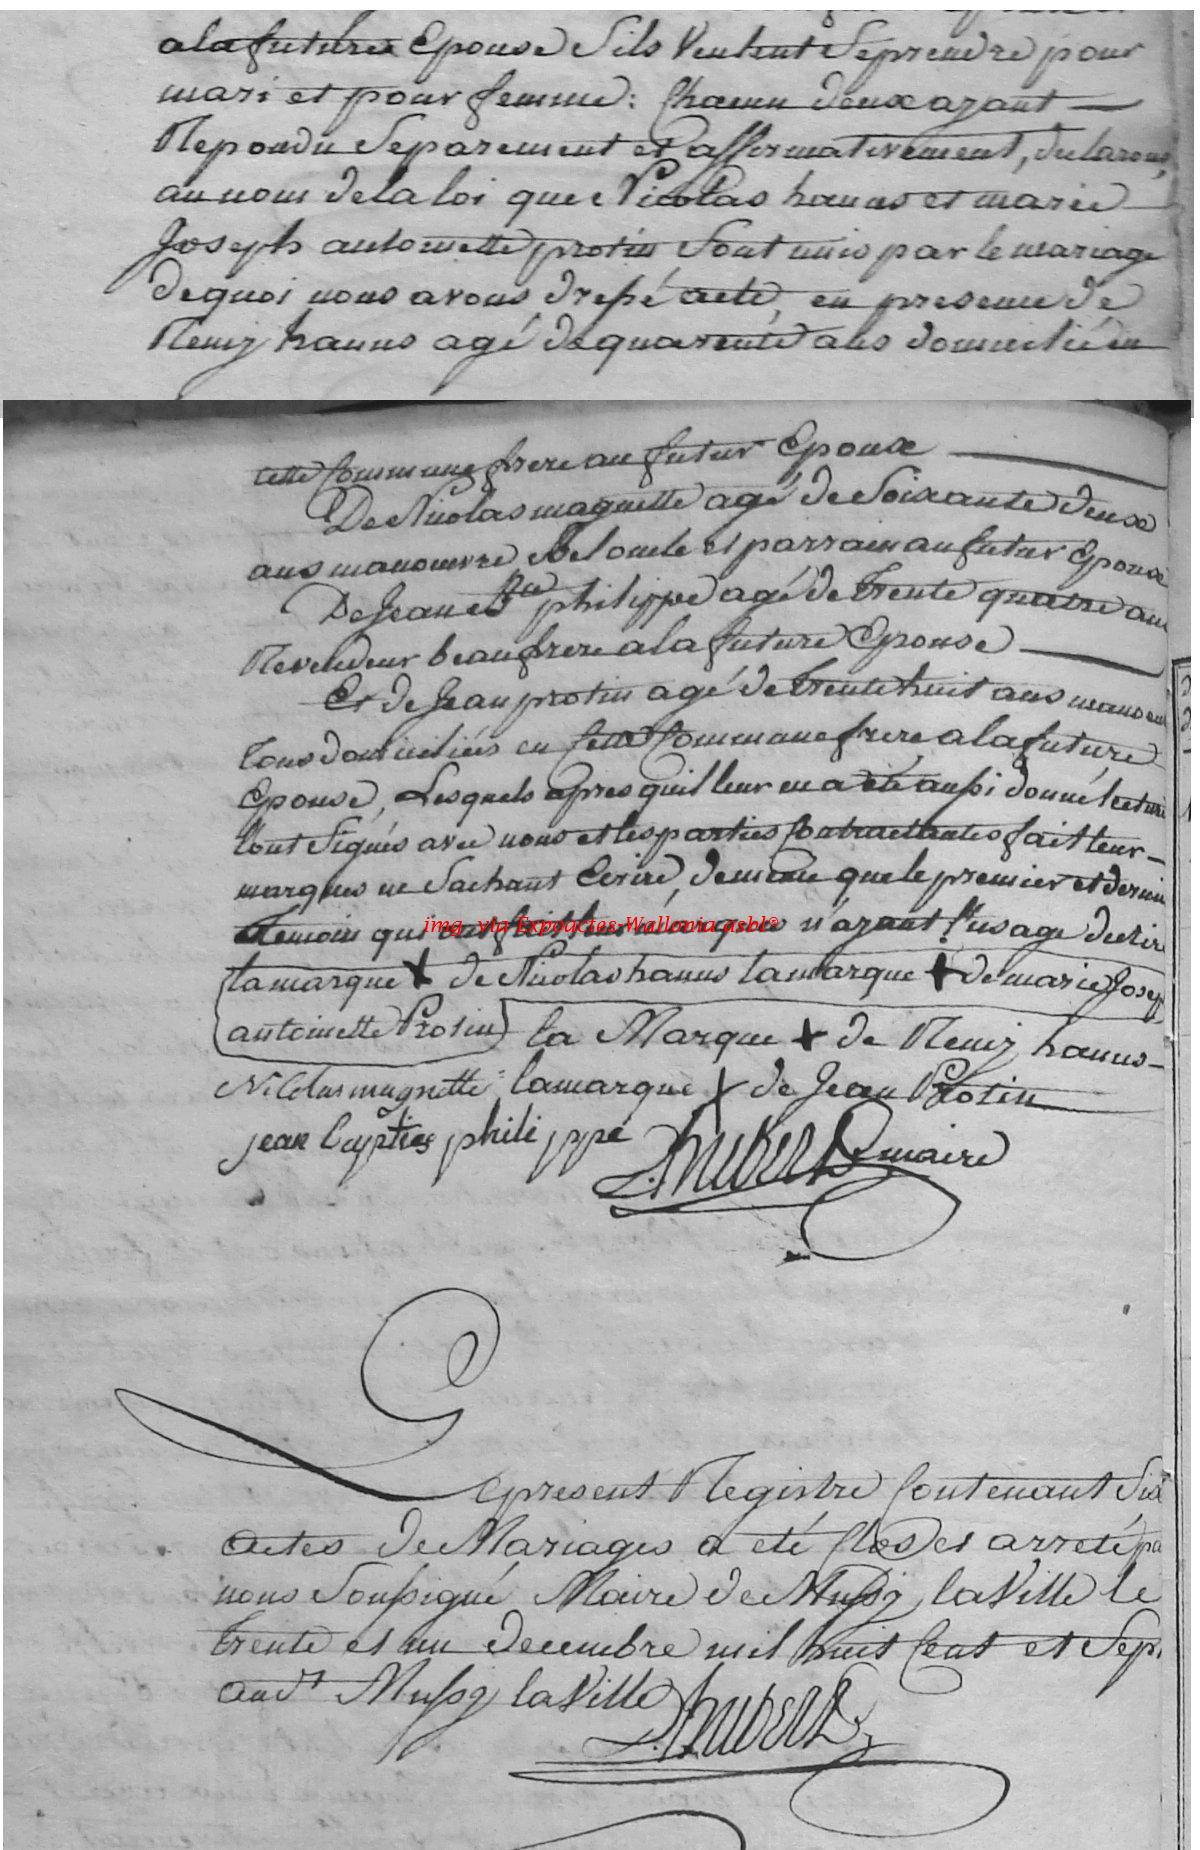 a la future Epouse Sils Veulent Se prendre pour
mari et pour femme: Chacun deux ayant
Repondu Separement et affirmativement, declarons,
au nom de la loi que Nicolas hanus et marie
Joseph antoinette protin Sont unis par le mariage
de quoi nous avons drefsé acte, en presence de
Remy hanus agé de quarente ans domicilié en
cette Commune frere au futur Epoux
De Nicolas magnette agé de Soixante deux
ans manoeuvre Bel oncle et parrain au futur Epoux
De Jean Bte philippe agé de trente quatre ans
Revendeur beaufrere a la future Epouse
Et de Jean protin agé de trente huit ans manoeuv
tous domiciliés en Cette Commune frere a la future
Epouse, Lesquels apres quil leur en a été aufsi donné lecture
Sont Signés avec nous et les parties Contractantes fait leur
marques ne Sachant Ecrire, de meme que le premier et dernier
temoin qui ont fait leur marque n'ayant l'usage decrire
img. via Expoactes-Wallonia asbl®
la marque + de Nicolas hanus la marque + de marie Josep
antoinette Protin la Marque + de Remy hanus
Nicolas magnette la marque + de Jean Protin
jean baptiss philippe LHubert maire
Le present Registre Contenant Six
actes de Mariages a eté Clos et arreté pa
nous Soufsigné Maire de Mufsy la Ville le
trente et un decembre mil huit Cent et Sept
aud.t Mufsy la Ville LHubert